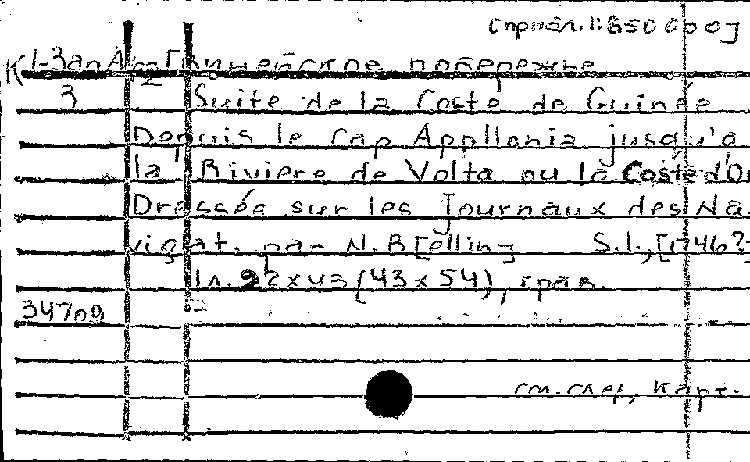 [1:850000]
К 1-Зап Аф Гвинейское побережье
2
3 Suite de la Coste de Guinée
Depuis le Cap Appllonia jusqu'a
la Riviere de Volta ou la Coste d'Or
Dressée sur les Journaux des Na
vigat. par N. B[ellin] S.l., [1746?]
1л. 22x43 (43x54), грав.
34709
см. след. карт.